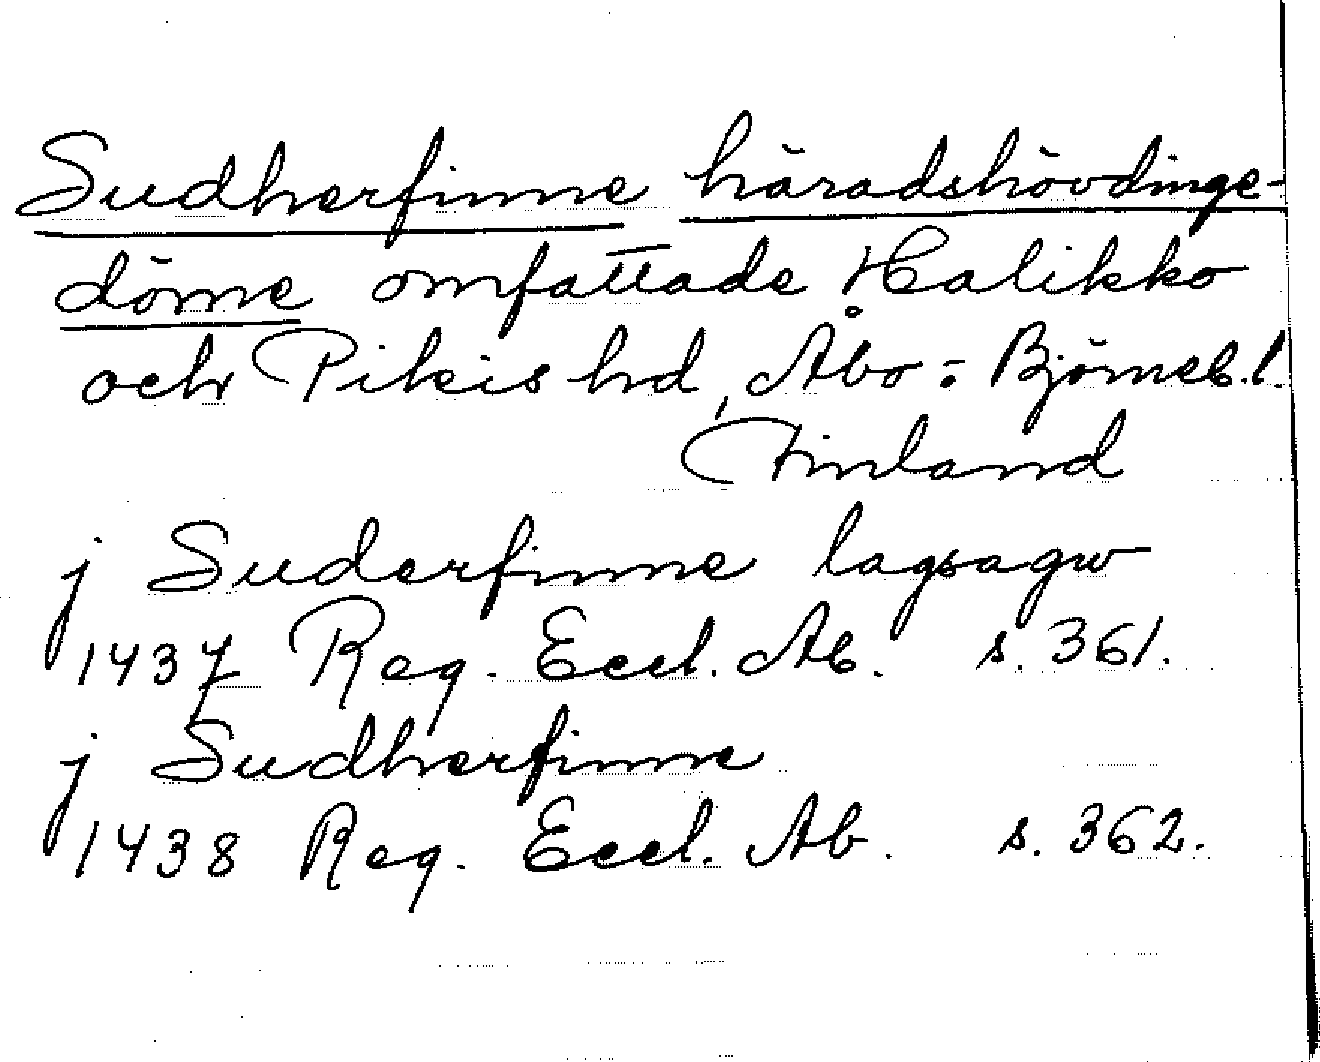 Sudherfinne häradshövdinge-
döme omfattade Halikko
och Pikis hd, Åbo-Björneb. l.
Finland
j Suderfinne lagsagw
1437 Reg. Eccl. Ab. s. 361.
j Sudherfinne
1438 Reg. Eccl. Ab. s. 362.